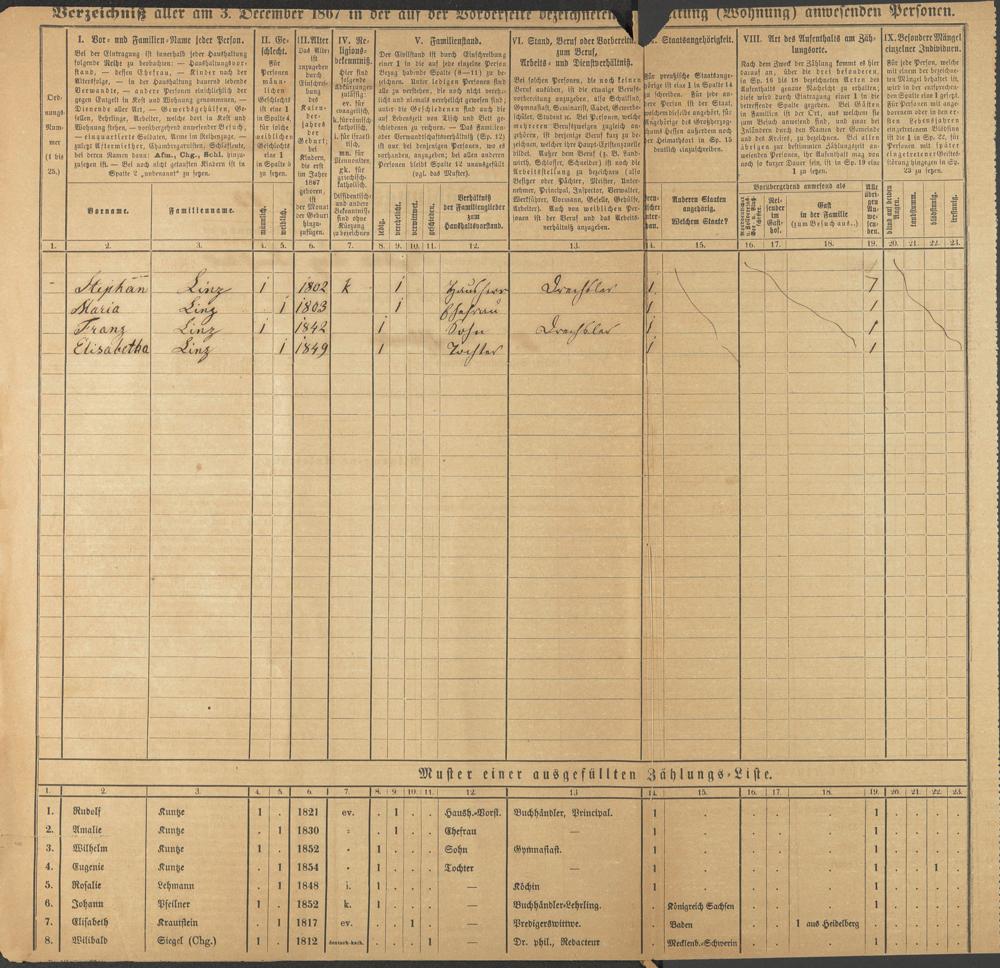 Verzeichniß aller am 3. December 1867 in der auf der Vorderseite bezeichneten ... (Wohnung) anwesenden Personen.
Ord-
nungs-
Num-
mer
(1 bis
25.)
I. Vor- und Familien-Name jeder Person.
Bei der Eintragung ist innerhalb jeder Haushaltung
folgende Reihe zu beobachten: — Haushaltungsvor-
stand, — dessen Ehefrau, — Kinder nach der
Altersfolge, — in der Haushaltung dauernd lebende
Verwandte, — andere Personen einschließlich der
gegen Entgelt in Kost und Wohnung genommenen, —
Dienende aller Art, — Gewerbsgehülfen, Ge-
sellen, Lehrlinge, Arbeiter, welche dort in Kost und
Wohnung stehen, — vorübergehend anwesender Besuch,
— einquartierte Soldaten, Arme im Reihenzuge, —
zuletzt Aftermiether, Chambregarnisten, Schlafleute,
bei deren Namen dann: Afm., Chg., Schl. hinzu-
zusetzen ist. — Bei noch nicht getauften Kindern ist in
Spalte 2 „unbenannt" zu setzen.
Vorname.
Familienname.
II. Ge-
schlecht.
Für
Personen
män-
lichen
Geschlechts
ist eine 1
in Spalte 4,
für solche
weiblichen
Geschlechts
eine 1
in Spalte 5
zu setzen.
männlich.
weiblich.
III. Alter
Das Alter
ist
anzugeben
durch
Einschrei-
bung
des
Kalen-
der-
jahres
der
Geburt;
bei
Kindern,
die erst
im Jahre
1867
geboren,
ist
der Monat
der Geburt
hinzu-
zufügen.
IV. Re-
ligions-
bekenntniß.
Hier sind
folgende
Abkürzungen
zulässig:
ev. für
evangelisch,
k. für römisch-
katholisch,
i. für israeli-
tisch,
mn. für
Mennoniten,
gk. für
griechisch-
katholisch.
Dissidentisch-
und andere
Bekenntniß-
sind ohne
Kürzung
zu bezeichnen
V. Familienstand.
Der Civilstand ist durch Einschreibung
einer 1 in die auf jede einzelne Person
Bezug habende Spalte (8—11) zu be-
zeichnen. Unter ledigen Personen sind
alle zu verstehen, die noch nicht vereh-
licht und niemals verehelicht gewesen sind;
unter die Geschiedenen sind auch die
auf Lebenszeit von Tisch und Bett ge-
schiedenen zu rechnen. — Das Familien-
oder Verwandtschaftsverhältniß (Sp. 12)
ist nur bei denjenigen Personen, wo es
vorhanden, anzugeben; bei allen anderen
Personen bleibt Spalte 12 unausgefüllt
(vgl. das Muster).
ledig.
verehelicht.
verwittwet.
geschieden.
Verhältniß
der Familienglieder
zum
Haushaltsvorstand.
VI. Stand, Beruf oder Vorbereit
zum Beruf,
Arbeits- und Dienstverhältniß.
Bei solchen Personen, die noch keinen
Beruf ausüben, ist die etwaige Berufs-
vorbereitung anzugeben, also Schulkind,
Gymnasiast, Seminarist, Cadet, Gewerb-
schüler, Student etc. Bei Personen, welche
mehreren Berufszweigen zugleich an-
gehören, ist derjenige Beruf kurz zu be-
zeichnen, welcher ihre Haupt-Existenzquelle
bildet. Außer dem Beruf (z. B. Land-
wirth, Schlosser, Schneider) ist auch die
Arbeitsstellung zu bezeichnen (also
Besitzer oder Pächter, Meister, Unter-
nehmer, Principal, Inspector, Verwalter,
Werkführer, Vormann, Geselle, Gehülfe,
Arbeiter). Auch von weiblichen Per-
sonen ist der Beruf und das Arbeits-
verhältniß anzugeben.
Staatsangehörigkeit.
Für preußische Staatsange-
hörige ist eine 1 in Spalte 14
zu schreiben. Für jede an-
dere Person ist der Staat,
welchem dieselbe angehört, für
Angehörige des Großherzog-
thums Hessen außerdem noch
der Heimathsort in Sp. 15
deutlich einzuschreiben.
Anderen Staaten
angehörig.
Welchem Staate?
VIII. Art des Aufenthalts am Zäh-
lungsorte.
Nach dem Zweck der Zählung kommt es hier
darauf an, über die drei besonderen,
in Sp. 16 bis 18 bezeichneten Arten des
Aufenthalts genaue Nachricht zu erhalten;
diese wird durch Eintragung einer 1 in die
betreffende Spalte gegeben. Bei Gästen
in Familien ist der Ort, aus welchem sie
zum Besuch anwesend sind, und zwar bei
Inländern durch den Namen der Gemeinde
und des Kreises, zu bezeichnen. Bei allen
übrigen zur bestimmten Zählungszeit an-
wesenden Personen, ihr Aufenthalt mag von
noch so kurzer Dauer sein, ist in Sp. 19 eine
1 zu setzen.
Vorübergehend anwesend als
Rei-
sender
im
Gast-
hof.
Gast
in der Familie
(zum Besuch aus..)
Alle
übri-
gen
An-
we-
sen-
den.
IX. Besondere Mängel
einzelner Individuen.
Für jede Person, welche
mit einem der bezeichne-
ten Mängel behaftet ist,
wird in der entsprechen-
den Spalte eine 1 gesetzt.
Für Personen mit ange-
borenem oder in den er-
sten Lebensjahren
eingetretenem Blödsinn
ist die 1 in Sp. 22, für
Personen mit später
eingetretener Geistes-
störung hingegen in Sp.
23 zu setzen.
blind auf beiden Augen.
taubstumm.
blödsinnig.
irrsinnig.
1. 2. 3. 4. 5. 6. 7. 8. 9. 10. 11. 12. 13. 14. 15. 16. 17. 18. 19. 20. 21. 22. 23.
Stephan Linz 1 1802 k 1 Hausherr Drechsler 1 1
Maria Linz 1 1803 1 Ehefrau 1 1
Franz Linz 1 1842 1 Sohn Drechsler 1 1
Elisabetha Linz 1 1849 1 Tochter 1 1
Muster einer ausgefüllten Zählungs-Liste.
1. 2. 3. 4. 5. 6. 7. 8. 9. 10. 11. 12. 13 14. 15. 16. 17. 18. 19. 20. 21. 22. 23.
1. Rudolf Kuntze 1 . 1821 ev. . 1 . . Haush.-Vorst. Buchhändler, Principal. 1 . . . . 1 . . . .
2. Amalie Kuntze . 1 1830 " . 1 . . Ehefrau — 1 . . . . 1 . . . .
3. Wilhelm Kuntze 1 . 1852 " 1 . . . Sohn Gymnasiast. 1 . . . . 1 . . . .
4. Eugenie Kuntze . 1 1854 " 1 . . . Tochter — 1 . . . . 1 . . 1 .
5. Rosalie Lehmann . 1 1848 i. 1 . . . — Köchin 1 . . . . 1 . . . .
6. Johann Pfeilner 1 . 1852 k. 1 . . . — Buchhändler-Lehrling. . Königreich Sachsen . . . 1 . . . .
7. Elisabeth Krautstein . 1 1817 ev. . . 1 . — Predigerswittwe. . Baden . . 1 aus Heidelberg . . . . .
8. Wilibald Siegel (Chg.) 1 . 1812 deutsch-kath. . . . 1 — Dr. phil., Redacteur . Mecklenb.-Schwerin . . . 1 . . . .